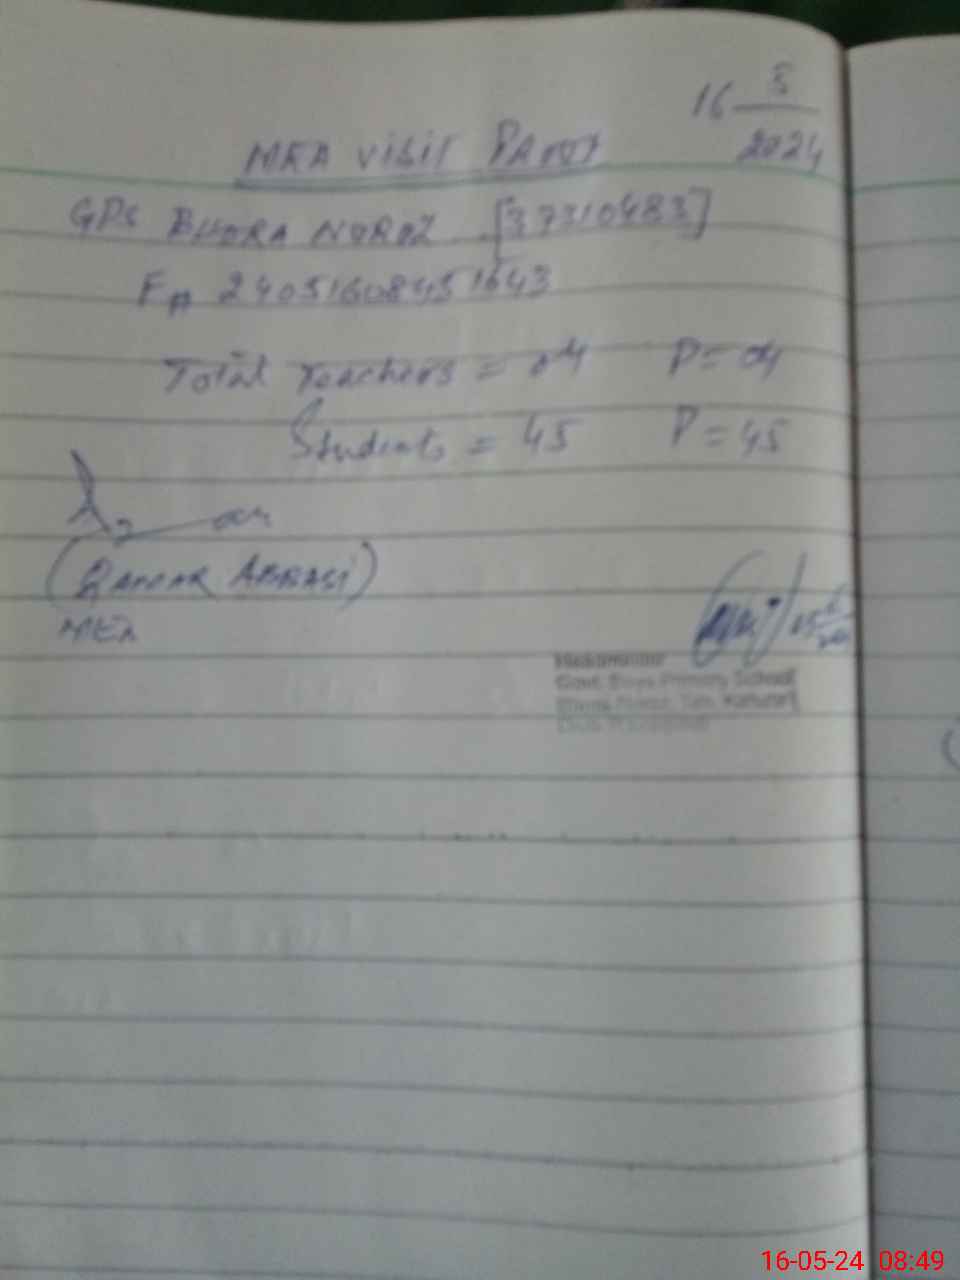 16 5/2024
MEA Visit Proof
GPS BHORA NOROZ [37310483]
F# 24051608451643
Total Teachers = 04 P = 04
Students = 45 P = 45
(Qamar Abbasi)
MEA
Govt. Boys Primary School
16-05-24 08:49